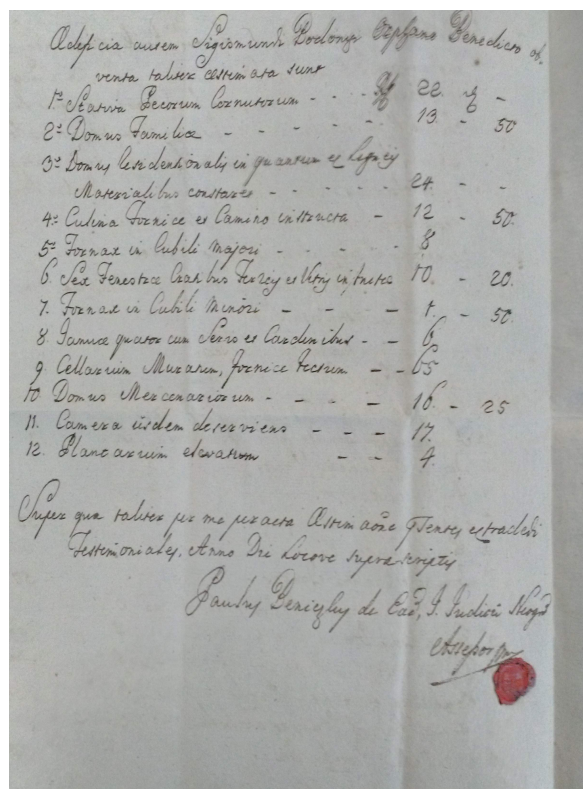 Aedificia autem Sigismundi Bodonyi Orphano Benedicto ob-
venta taliter aestimata sunt
1º Stativa Pecorum Cornutorum - - - Rf 22. x -
2º Domus Familiae - - - - - - 13. - 50
3º Domus Residentionalis in quantum ex Ligneis
Materialibus constaret - - - - - 24. - -
4º Culina Fornice et Camino instructa - 12 - 50.
5º Fornax in Cubili majori - - - - 8
6. Sex Fenestrae Cratibus Ferreis et Vitris instructae 10 - 20.
7. Fornax in Cubili Minori - - - - 1. - 50.
8 Januae quatuor cum Seris et Cardinibus - - 6
9. Cellarium Muratum, fornice tectum - - 65
10 Domus Mercenariorum - - - - 16. - 25
11. Camera iisdem deserviens - - - 17.
12. Plancarium elevatum - - 4.
Super qua taliter per me peracta Aestimaone pñtes extradedi
Testimoniales. Anno Dni Locove supra scriptis
Paulus de Ead, I. Judicii
Assessor